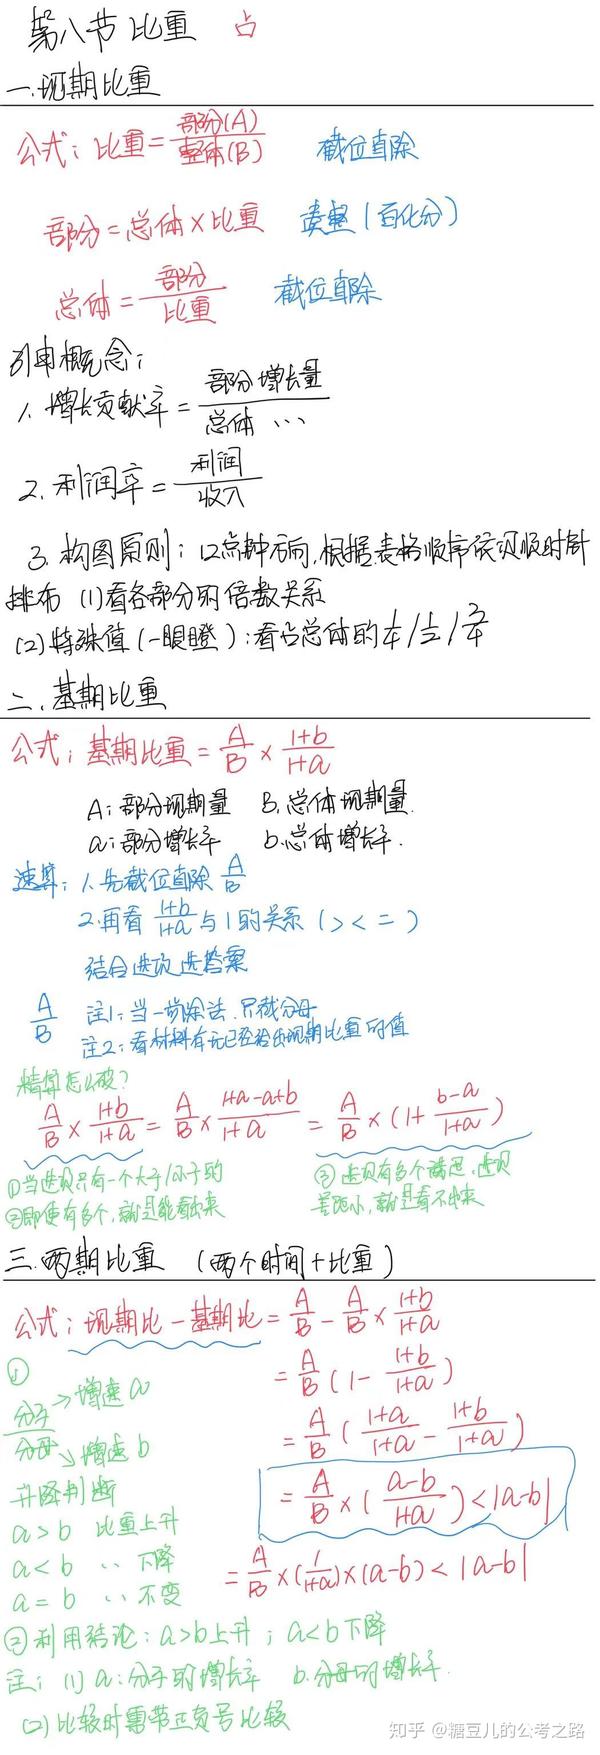 第八节 比重 占
一.现期比重
公式：比重=部分(A)/整体(B) 截位直除
部分=总体×比重 (百化分)
总体=部分/比重 截位直除
引申概念：
1. 增长贡献率=部分增长量/总体…
2. 利润率=利润/收入
3. 构图原则：12点钟方向,根据表格顺序依次顺时针
排布 (1)看各部分的倍数关系
(2)特殊值(一眼瞪):看占总体的
二.基期比重
公式：基期比重=A/B×(1+b)/(1+a)
A：部分现期量 B.总体现期量.
a：部分增长率 b.总体增长率.
速算：1.先截位直除 A/B
2.再看 (1+b)/(1+a) 与1的关系 (> < =)
结合选项选答案
A/B 注1：当一步除法.只截分母
注2：看材料有无已经给出现期比重的值
精算怎么破?
A/B×(1+b)/(1+a)=A/B×(1+a-a+b)/(1+a)=A/B×(1+(b-a)/(1+a))
①当选项只有一个大于/小于的
②即使有多个,就是能看出来
③选项有多个满足,选项
差距小,就是看不出来
三.两期比重 (两个时间+比重)
公式：现期比-基期比=A/B-A/B×(1+b)/(1+a)
=A/B(1-(1+b)/(1+a))
=A/B((1+a)/(1+a)-(1+b)/(1+a))
=A/B×((a-b)/(1+a))<|a-b|
=A/B×(1/(1+a))×(a-b)<|a-b|
①
分子→增速a
分母↘增速b
升降判断
a>b 比重上升
a<b ‥ 下降
a=b ‥ 不变
②利用结论：a>b上升；a<b下降
注：(1) a：分子的增长率 b.分母的增长率.
(2)比较时需带正负号比较
知乎 @糖豆儿的公考之路